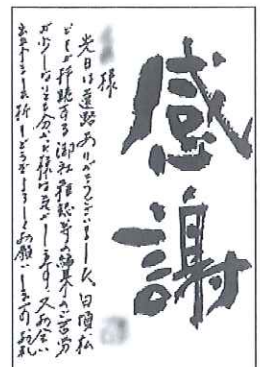 感謝
様
先日は遠路ありがとうございました。日頃
拝聴する御社 雑誌等の編集のご苦労
が少しなりとも分かる様な気がします。又お会い
出来ますことを祈りどうぞよろしくお願いします 敬礼